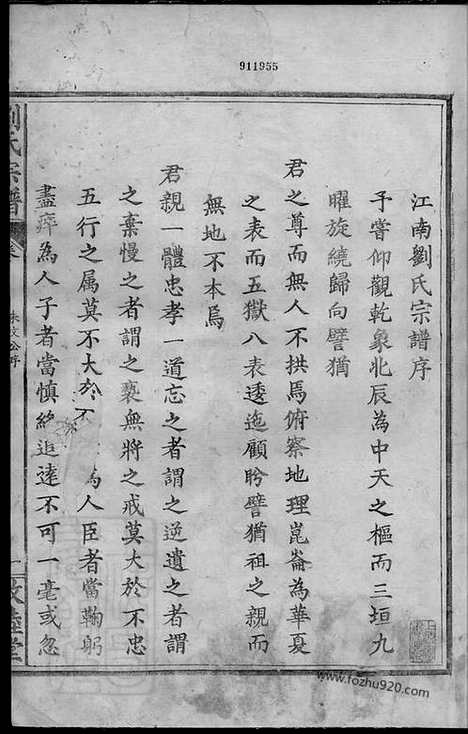 911955
江南劉氏宗譜序
予嘗仰觀乾象北辰為中天之樞而三垣九
曜旋繞歸向譬猶
君之尊而無人不拱焉俯察地理崑崙為華夏
之表而五嶽八表逶迤顧盼譬猶祖之親而
無地不本焉
君親一體忠孝一道忘之者謂之逆遺之者謂
之棄慢之者謂之褻無將之戒莫大於不忠
五行之属莫不大於不 為人臣者當鞠躬
盡瘁為人子者當慎終追遠不可一毫或忽
劉氏宗譜
卷
朱文公序
一
敦睦堂
www.fozhu920.com